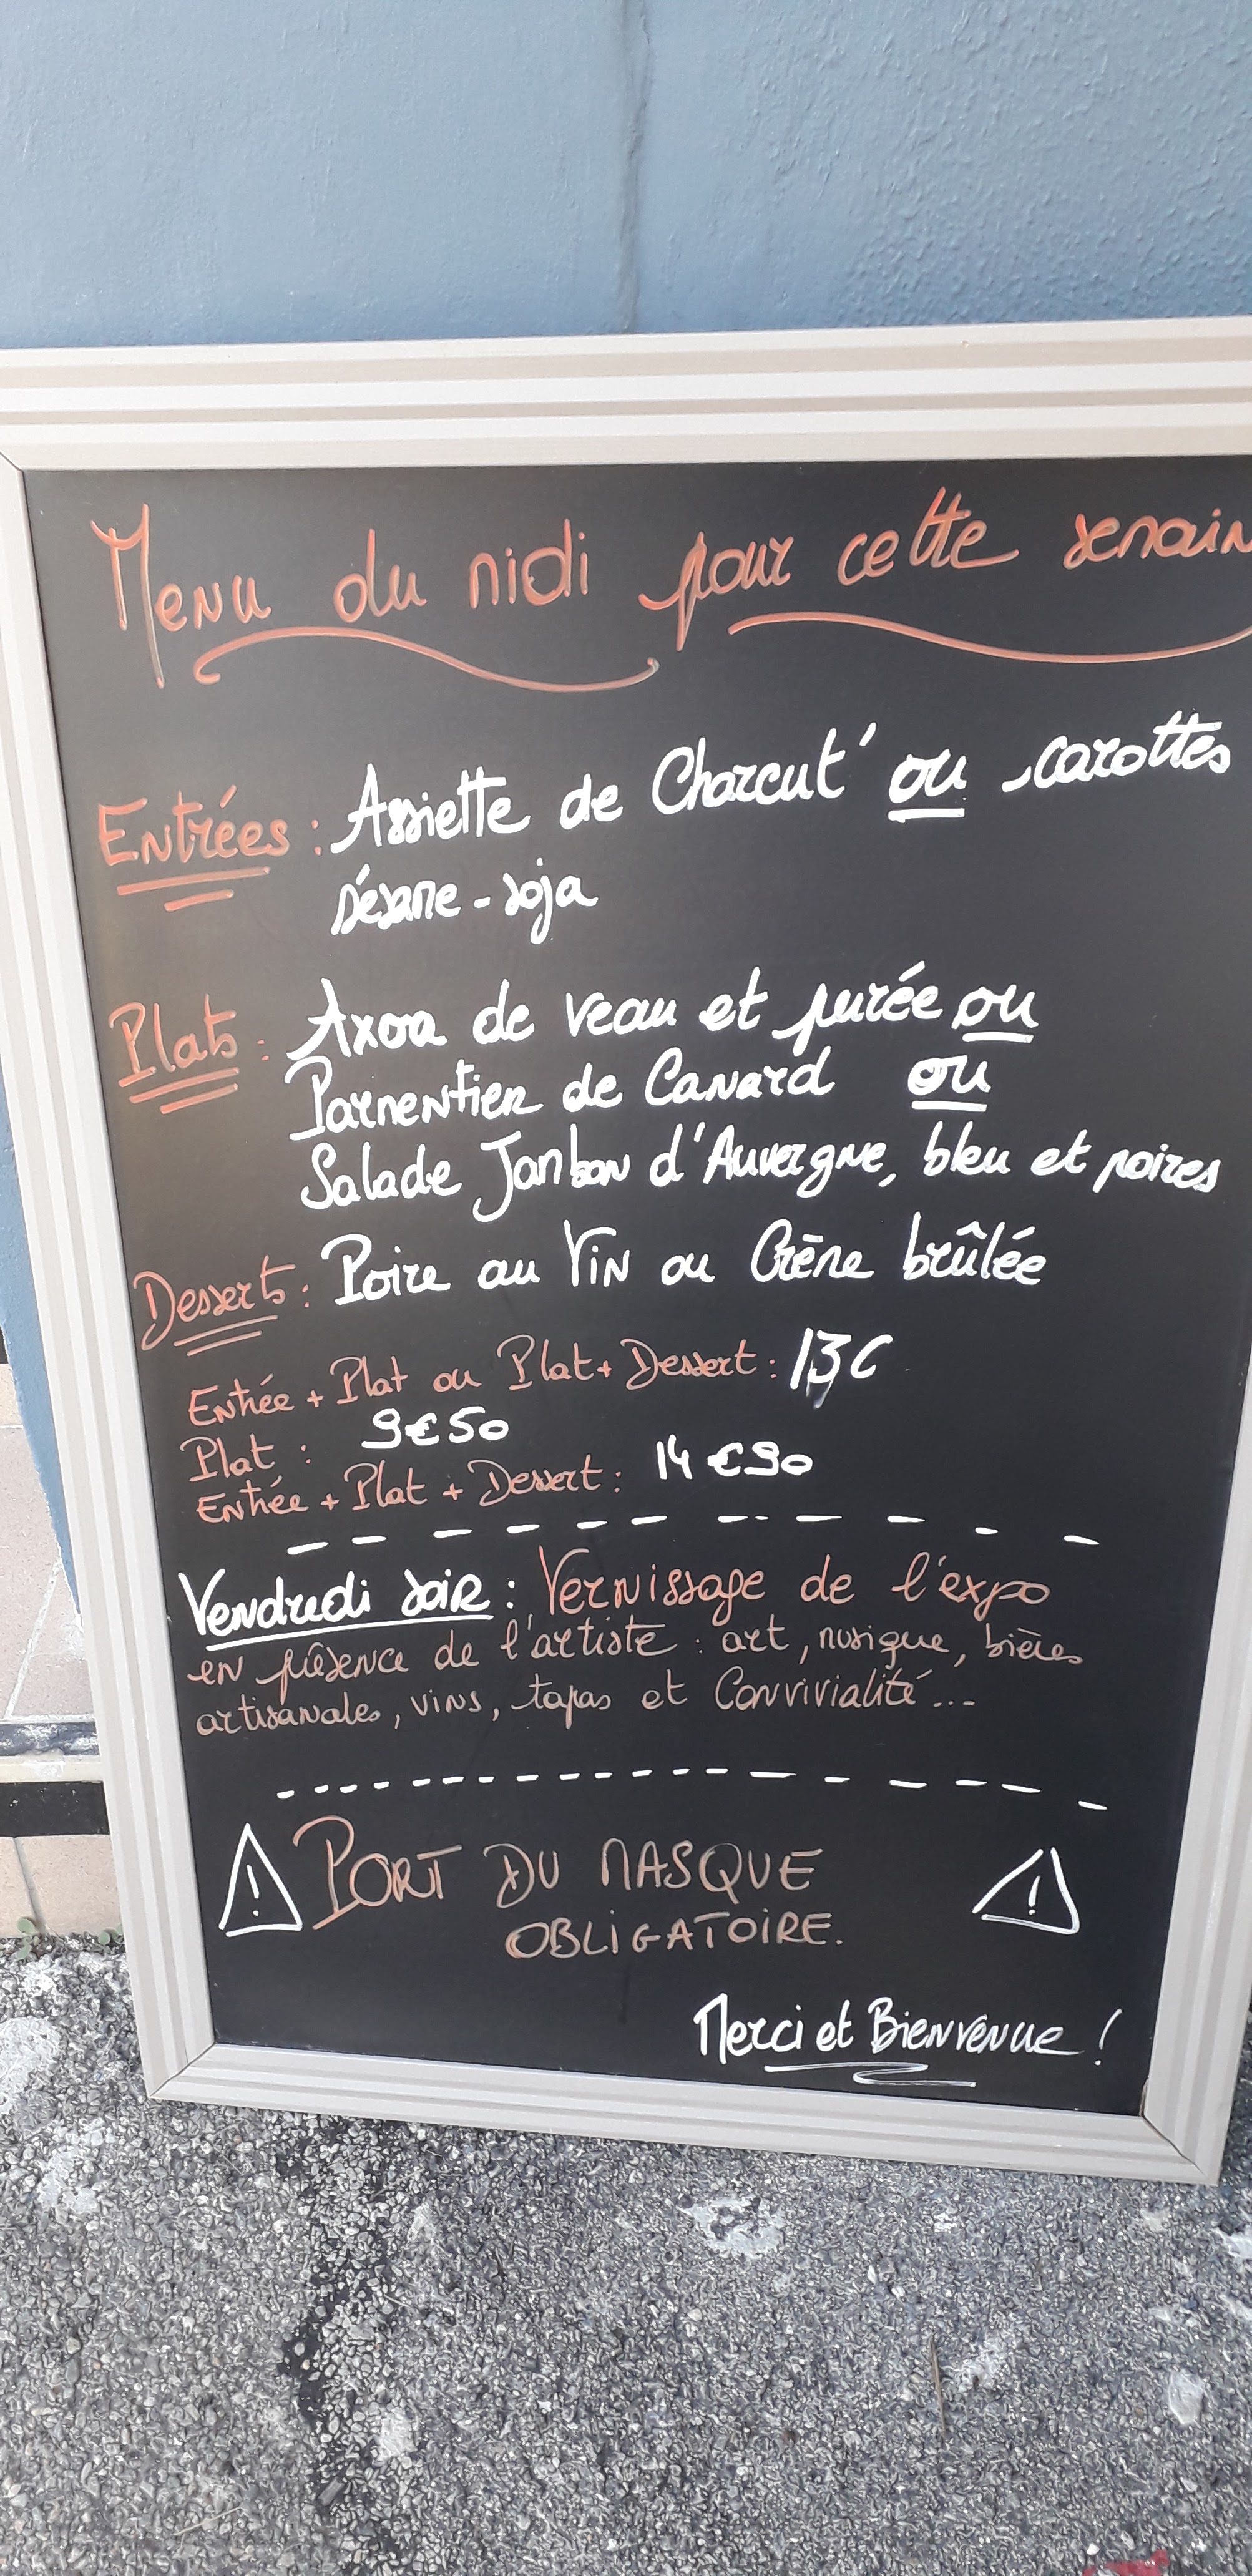 Menu du midi pour cette semain
Entrées : Assiette de Charcut' ou carottes
sésame-soja
Plats : Axoa de veau et purée ou
Parmentier de Canard ou
Salade Jambon d'Auvergne, bleu et poires
Desserts : Poire au Vin ou Crème brûlée
Entrée + Plat ou Plat + Dessert : 13€
Plat : 9€50
Entrée + Plat + Dessert : 14€90
Vendredi soir : Vernissage de l'expo
en présence de l'artiste : art, musique, bières
artisanales, vins, tapas et Convivialité...
! PORT DU MASQUE !
OBLIGATOIRE.
Merci et Bienvenue !